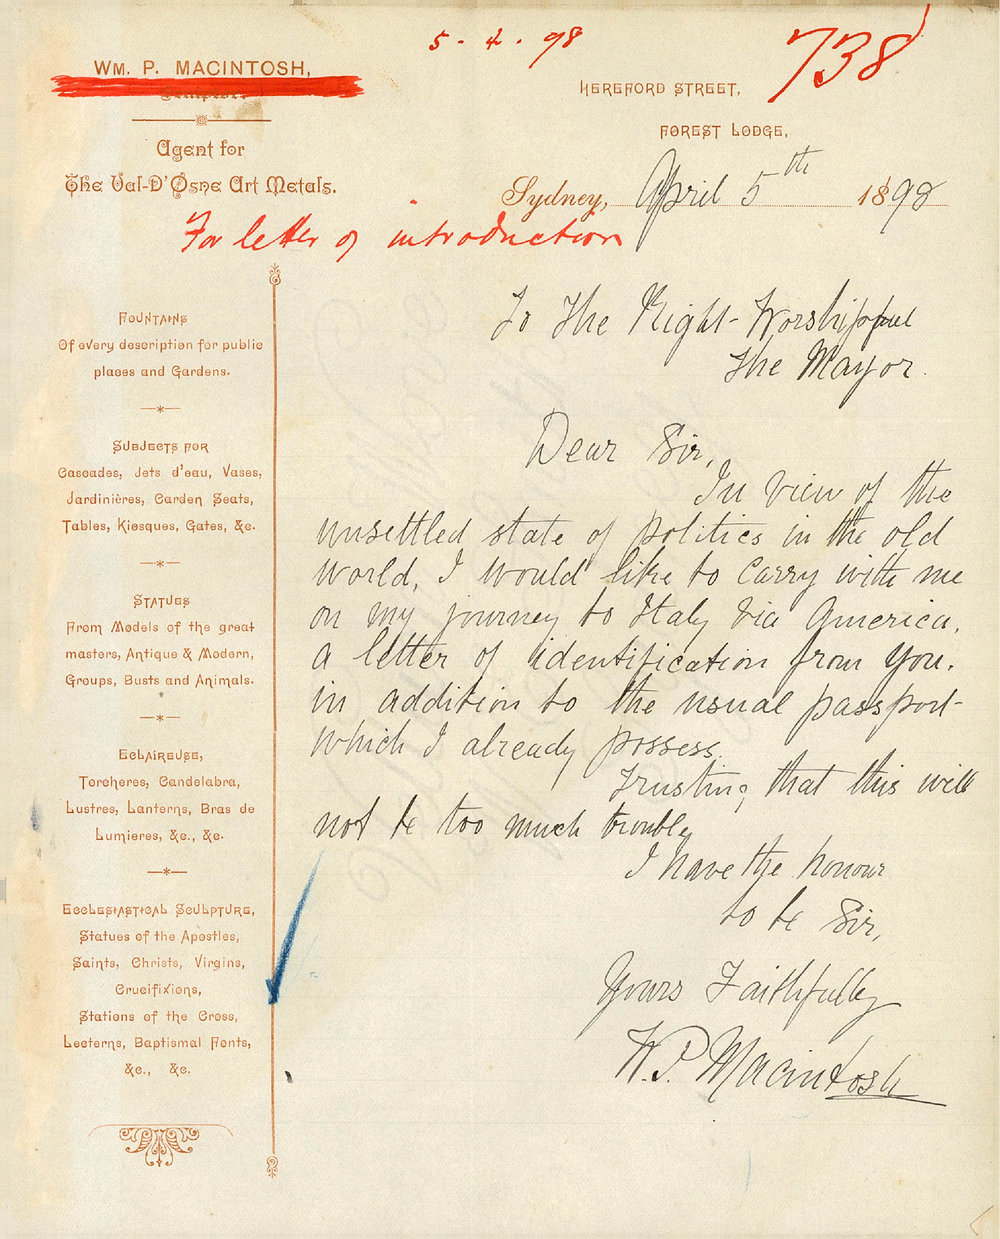 5 . 4 . 98
738
WM. P. MACINTOSH,
HEREFORD STREET,
FOREST LODGE,
Agent for
The Val-D'Osne Art Metals.
Sydney, April 5th 1898
For letter of introduction
To The Right-Worshipful
The Mayor.
Dear Sir,
In view of the
unsettled state of politics in the old
world, I would like to carry with me
on my journey to Italy via America,
a letter of identification from you.
in addition to the usual passport-
which I already possess.
Trusting that this will
not be too much trouble
I have the honour
to be Sir,
Yours Faithfully
W.P. Macintosh
FOUNTAINS
Of every description for public
places and Gardens.
SUBJECTS FOR
Cascades, Jets d'eau, Vases,
Jardinières, Garden Seats,
Tables, Kiosques, Gates, &c.
STATUES
From Models of the great
masters, Antique & Modern,
Groups, Busts and Animals.
ECLAIREUSE,
Torcheres, Candelabra,
Lustres, Lanterns, Bras de
Lumieres, &c., &c.
ECCLESIASTICAL SCULPTURE,
Statues of the Apostles,
Saints, Christs, Virgins,
Crucifixions,
Stations of the Cross,
Lecterns, Baptismal Fonts,
&c., &c.